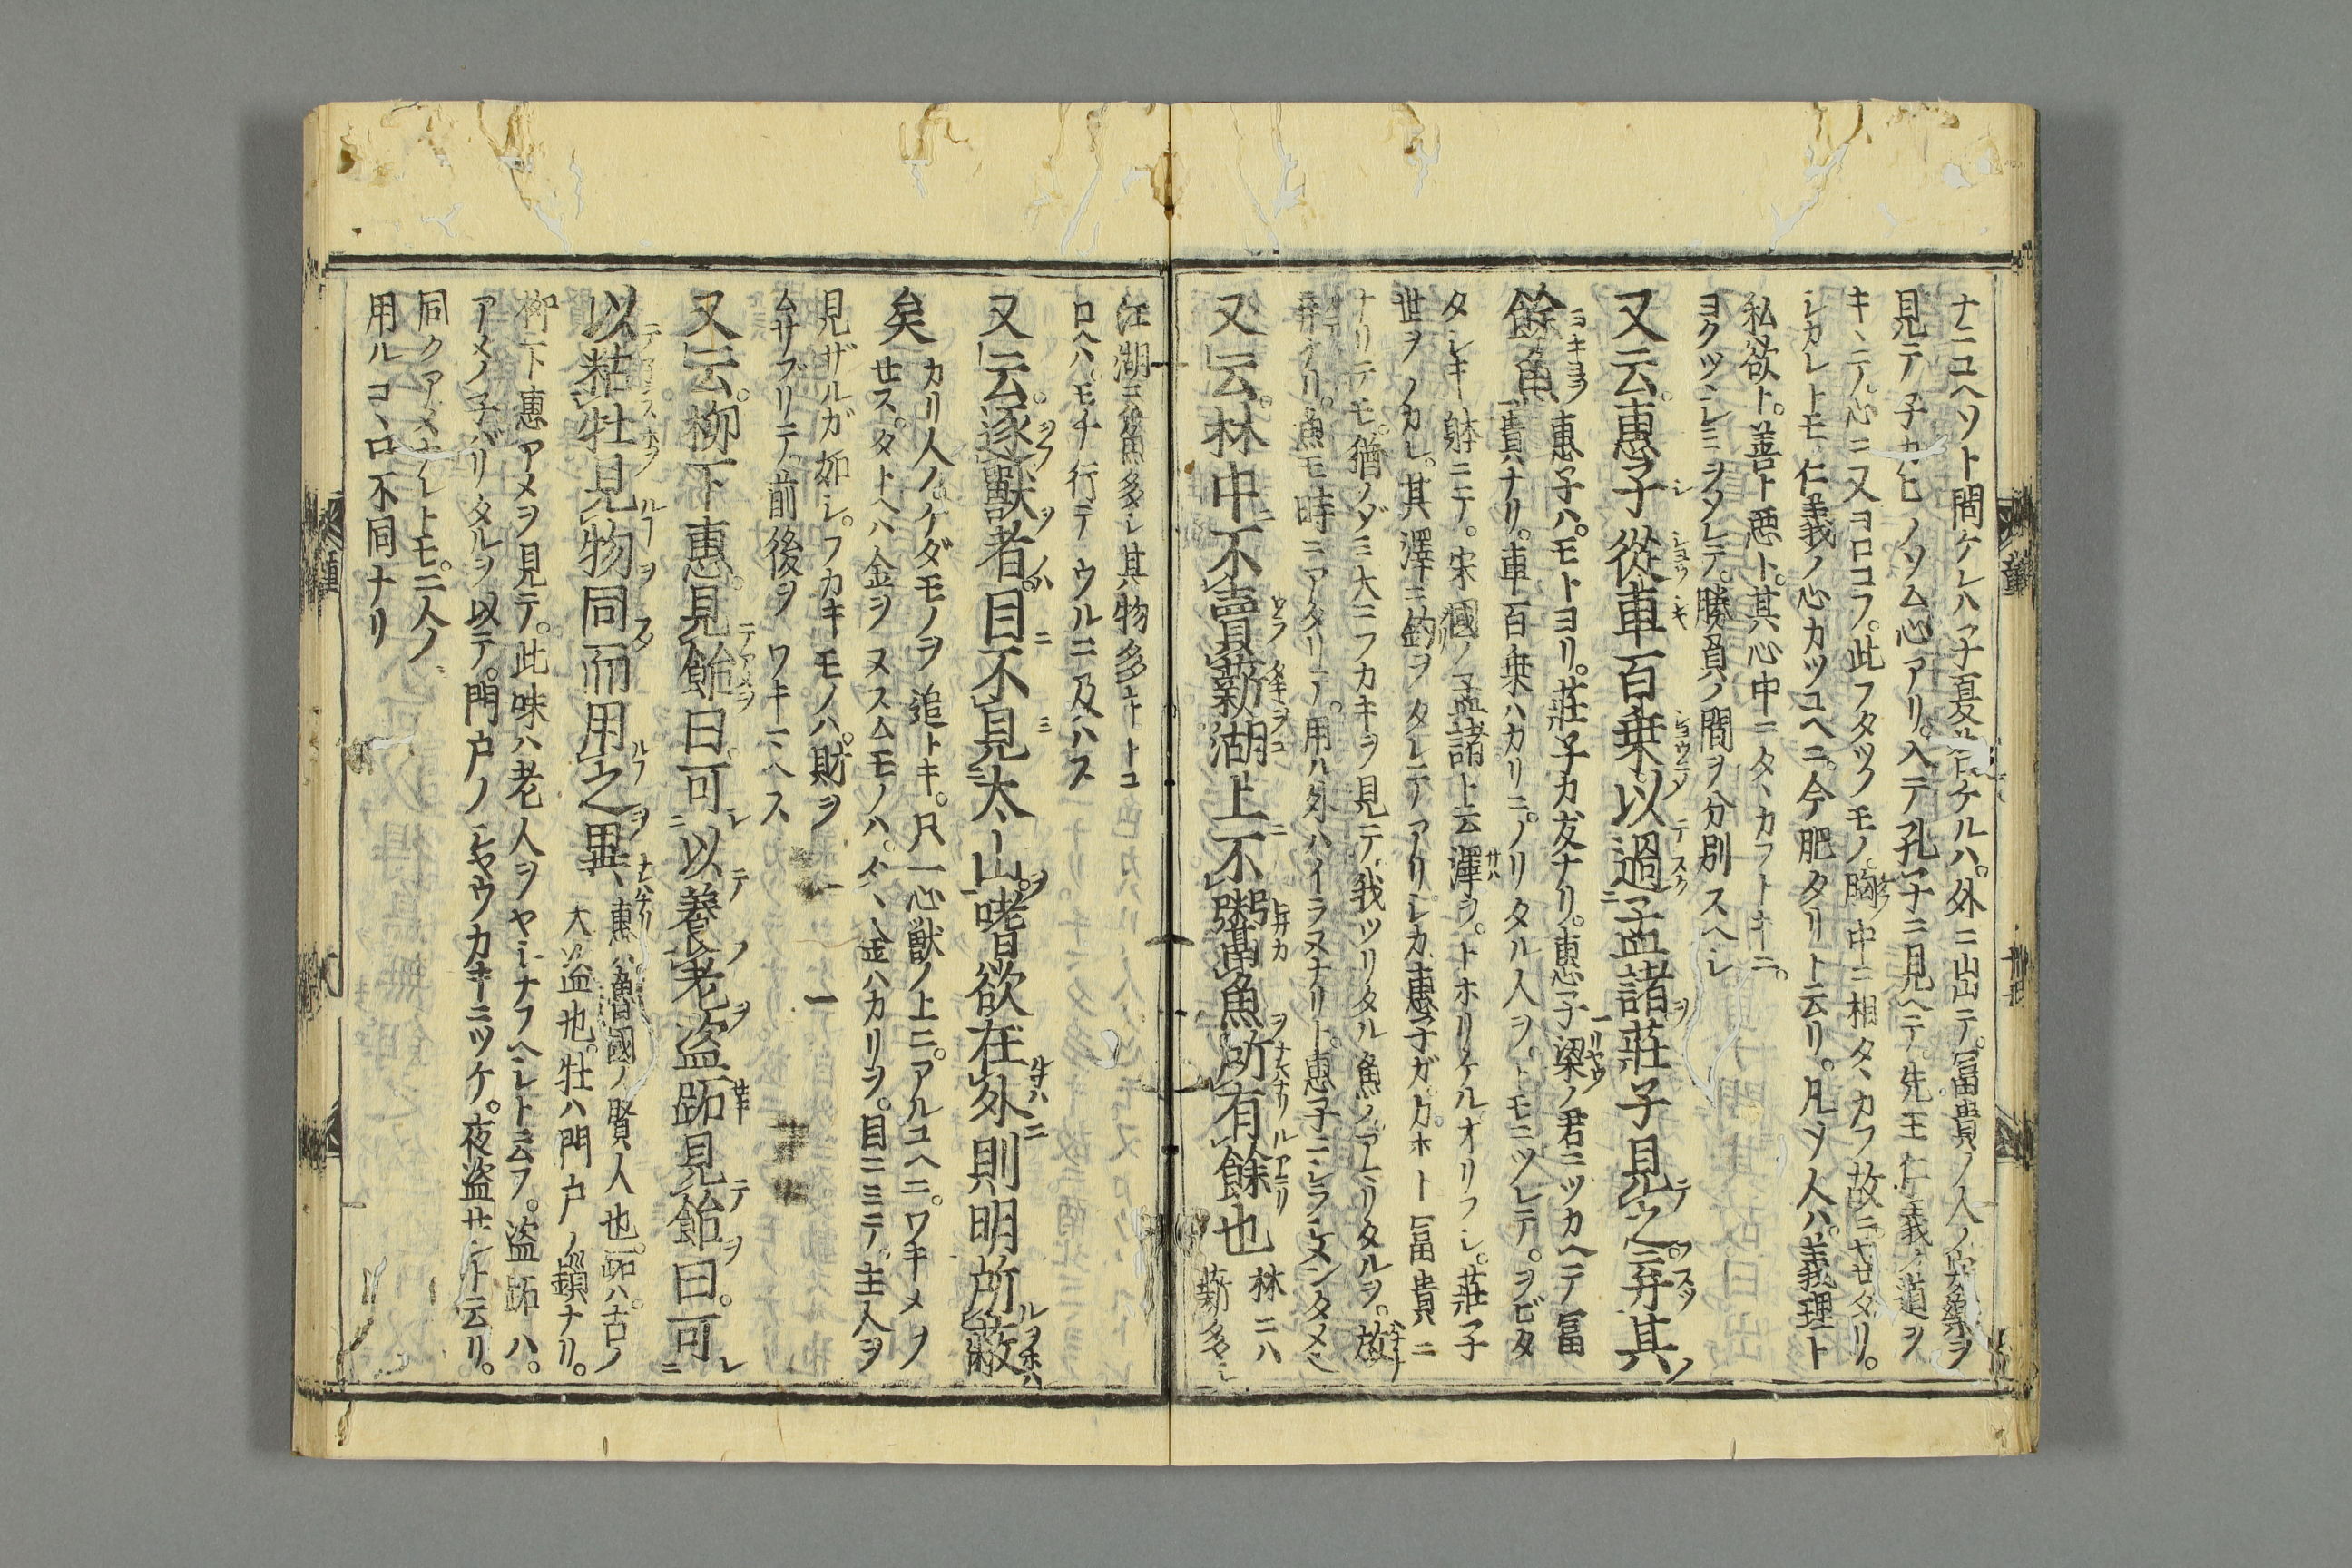 ナニユヘソト問ケレハ子夏答ケルハ。外ニ出テ。冨貴ノ人ノ安樂ヲ
見テ子カヒノソム心アリ。入テ孔子ニ見ヘテ。先王仁義ノ道ヲ
キヽテ。心ニ又ヨロコフ。此フタツノモノ。胸中ニ相タヽカフ故ニ。ヤセタリ。
シカレトモ仁義ノ心カツユヘニ。今肥タリト云リ。凡ソ人ハ。義理ト
私欲ト。善ト悪ト。其心中ニタヽカフトキニ。
ヨクツヽシミヲソレテ。勝負ノ間ヲ分別スヘシ
又云惠子從車百乗以過孟諸莊子見之弃其
餘魚
惠子ハ。モトヨリ。莊子カ友ナリ。惠子梁ノ君ニツカヘテ冨
貴ナリ。車百乗ハカリニ。ノリタル人ヲ。トモニツレテ。ヲビタ
タシキ躰ニテ。宋國ノ孟諸ト云澤ヲ。トホリケルオリフシ。莊子
世ヲノカレ。其澤ニ釣ヲタレテアリシカ惠子ガ。カホト冨貴ニ
ナリテモ。猶ノゾミ大ニフカキヲ見テ我ツリタル魚ノアマリタルヲ。
弃タリ。魚モ時ニアタリテ。用ル外ハイラヌナリト。惠子ニシラシメンタメ也
又云林中不賣薪湖上不鬻魚所有餘也
林ニハ
薪多シ
江湖ニ魚多シ其物多キトコ
ロヘハ。モチ行テウルニ及ハス
又云逐獸者目不見太山嗜欲在外則明所蔽
矣
カリ人ノ。ケダモノヲ追トキ。只一心獣ノ上ニ。アルユヘニ。ワキメヲ
セス。タトヘハ金ヲヌスムモノハ。金ハカリヲ。目ニミテ。主人ヲ
見ザルガ如シ。フカキモノハ。財ヲ
ムサブリテ。前後ヲワキマヘス
又云。柳下惠見飴曰可以養老盗跖見飴曰。可
以粘牡見物同而用之異
惠ハ魯國ノ賢人也。跖ハ。古ノ
大盗也。牡ハ門戸ノ鏁ナリ。
柳下惠アメヲ見テ。此味ハ老人ヲヤシナフヘシト云フ。盗跖ハ。
アメノ子バリタルヲ以テ。門戸ノシヤウカキニツケ。夜盗セント云リ。
同クアメナレトモ。二人ノ
用ルコヽロ不同ナリ